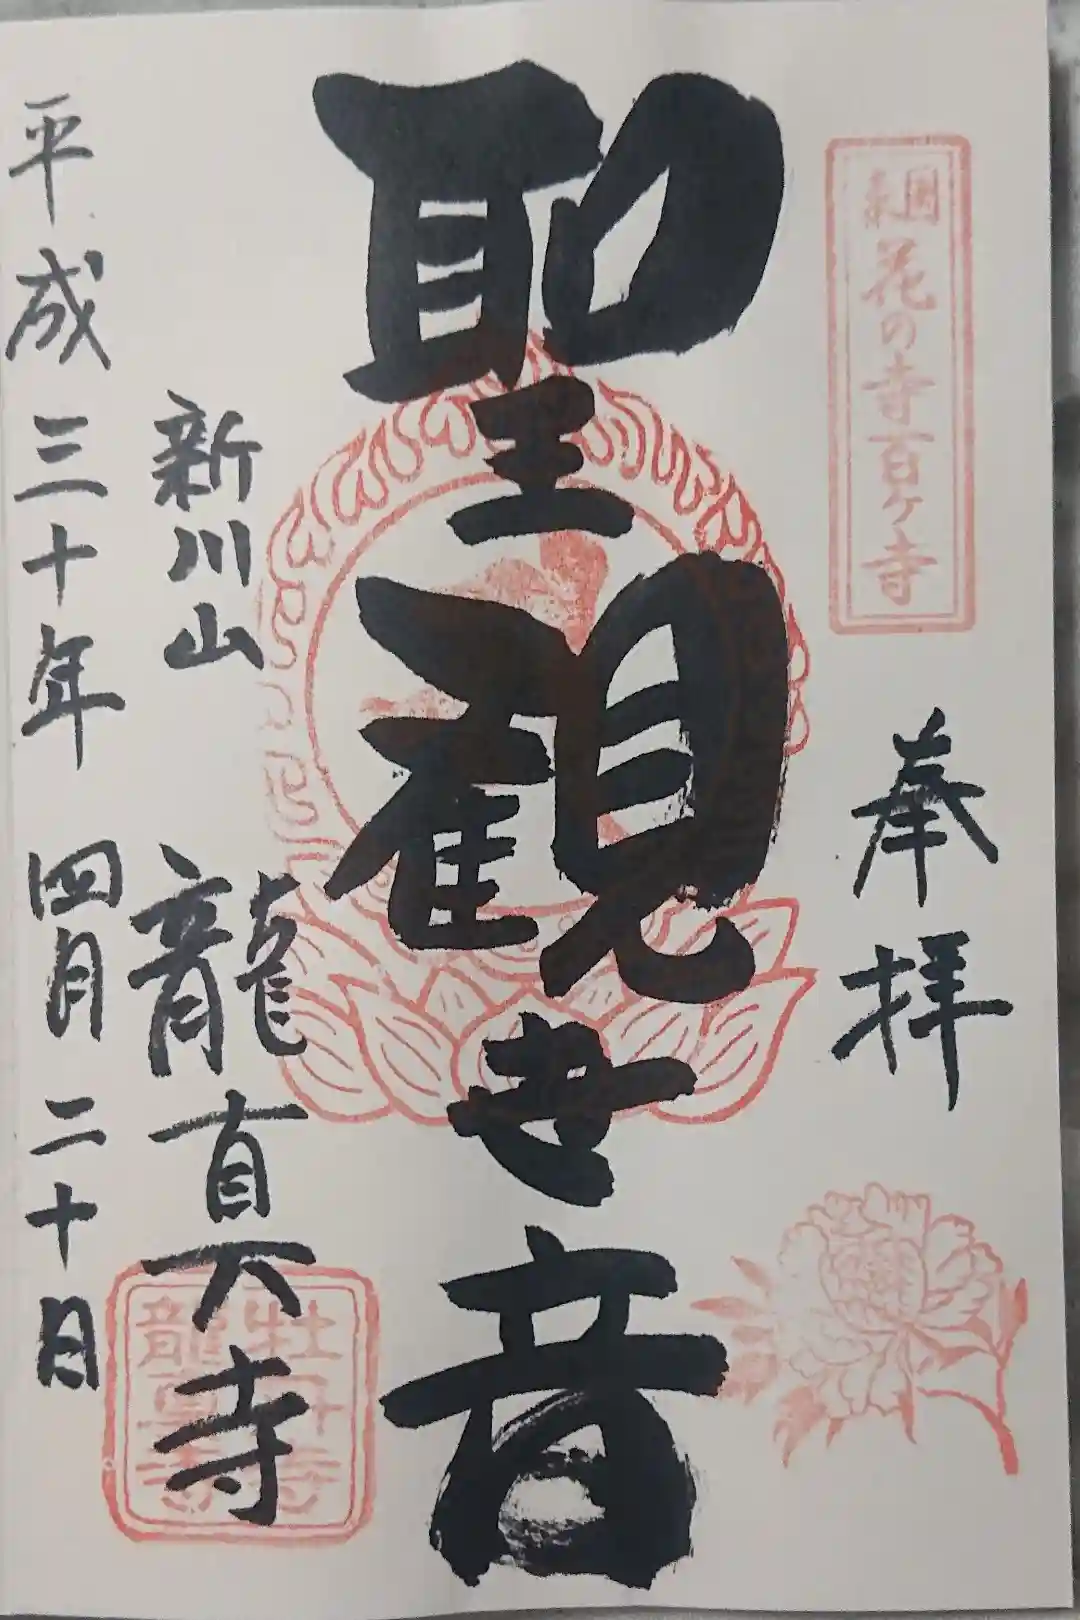 東国花の寺百ヶ寺
奉拝
聖観世音
新川山 龍真寺
牡丹寺
龍真寺
平成三十年 四月二十日